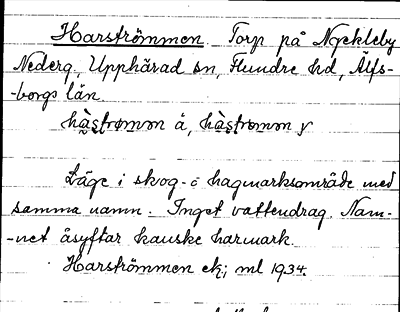 Harströmmen Torp på Nyckleby
Nederg, Upphärad sn, Flundre hd, Älfs-
-borgs län.
hàstrømøn å, hàstrømøn y
Läge i skog- o hagmarksområde med
samma namn. Inget vattendrag. Nam-
-net åsyftar kanske harmark.
Harströmmen ek; ml 1934.